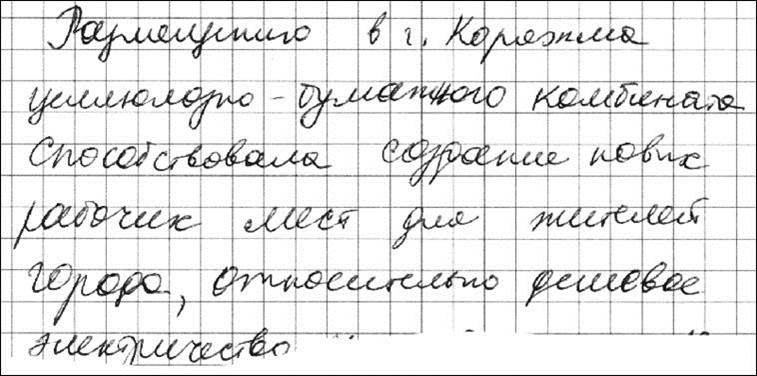 Размещению в г. Коряжма
целлюлозно-бумажного комбината
способствовала создание новых
рабочих мест для жителей
города, относительно дешевое
электричество